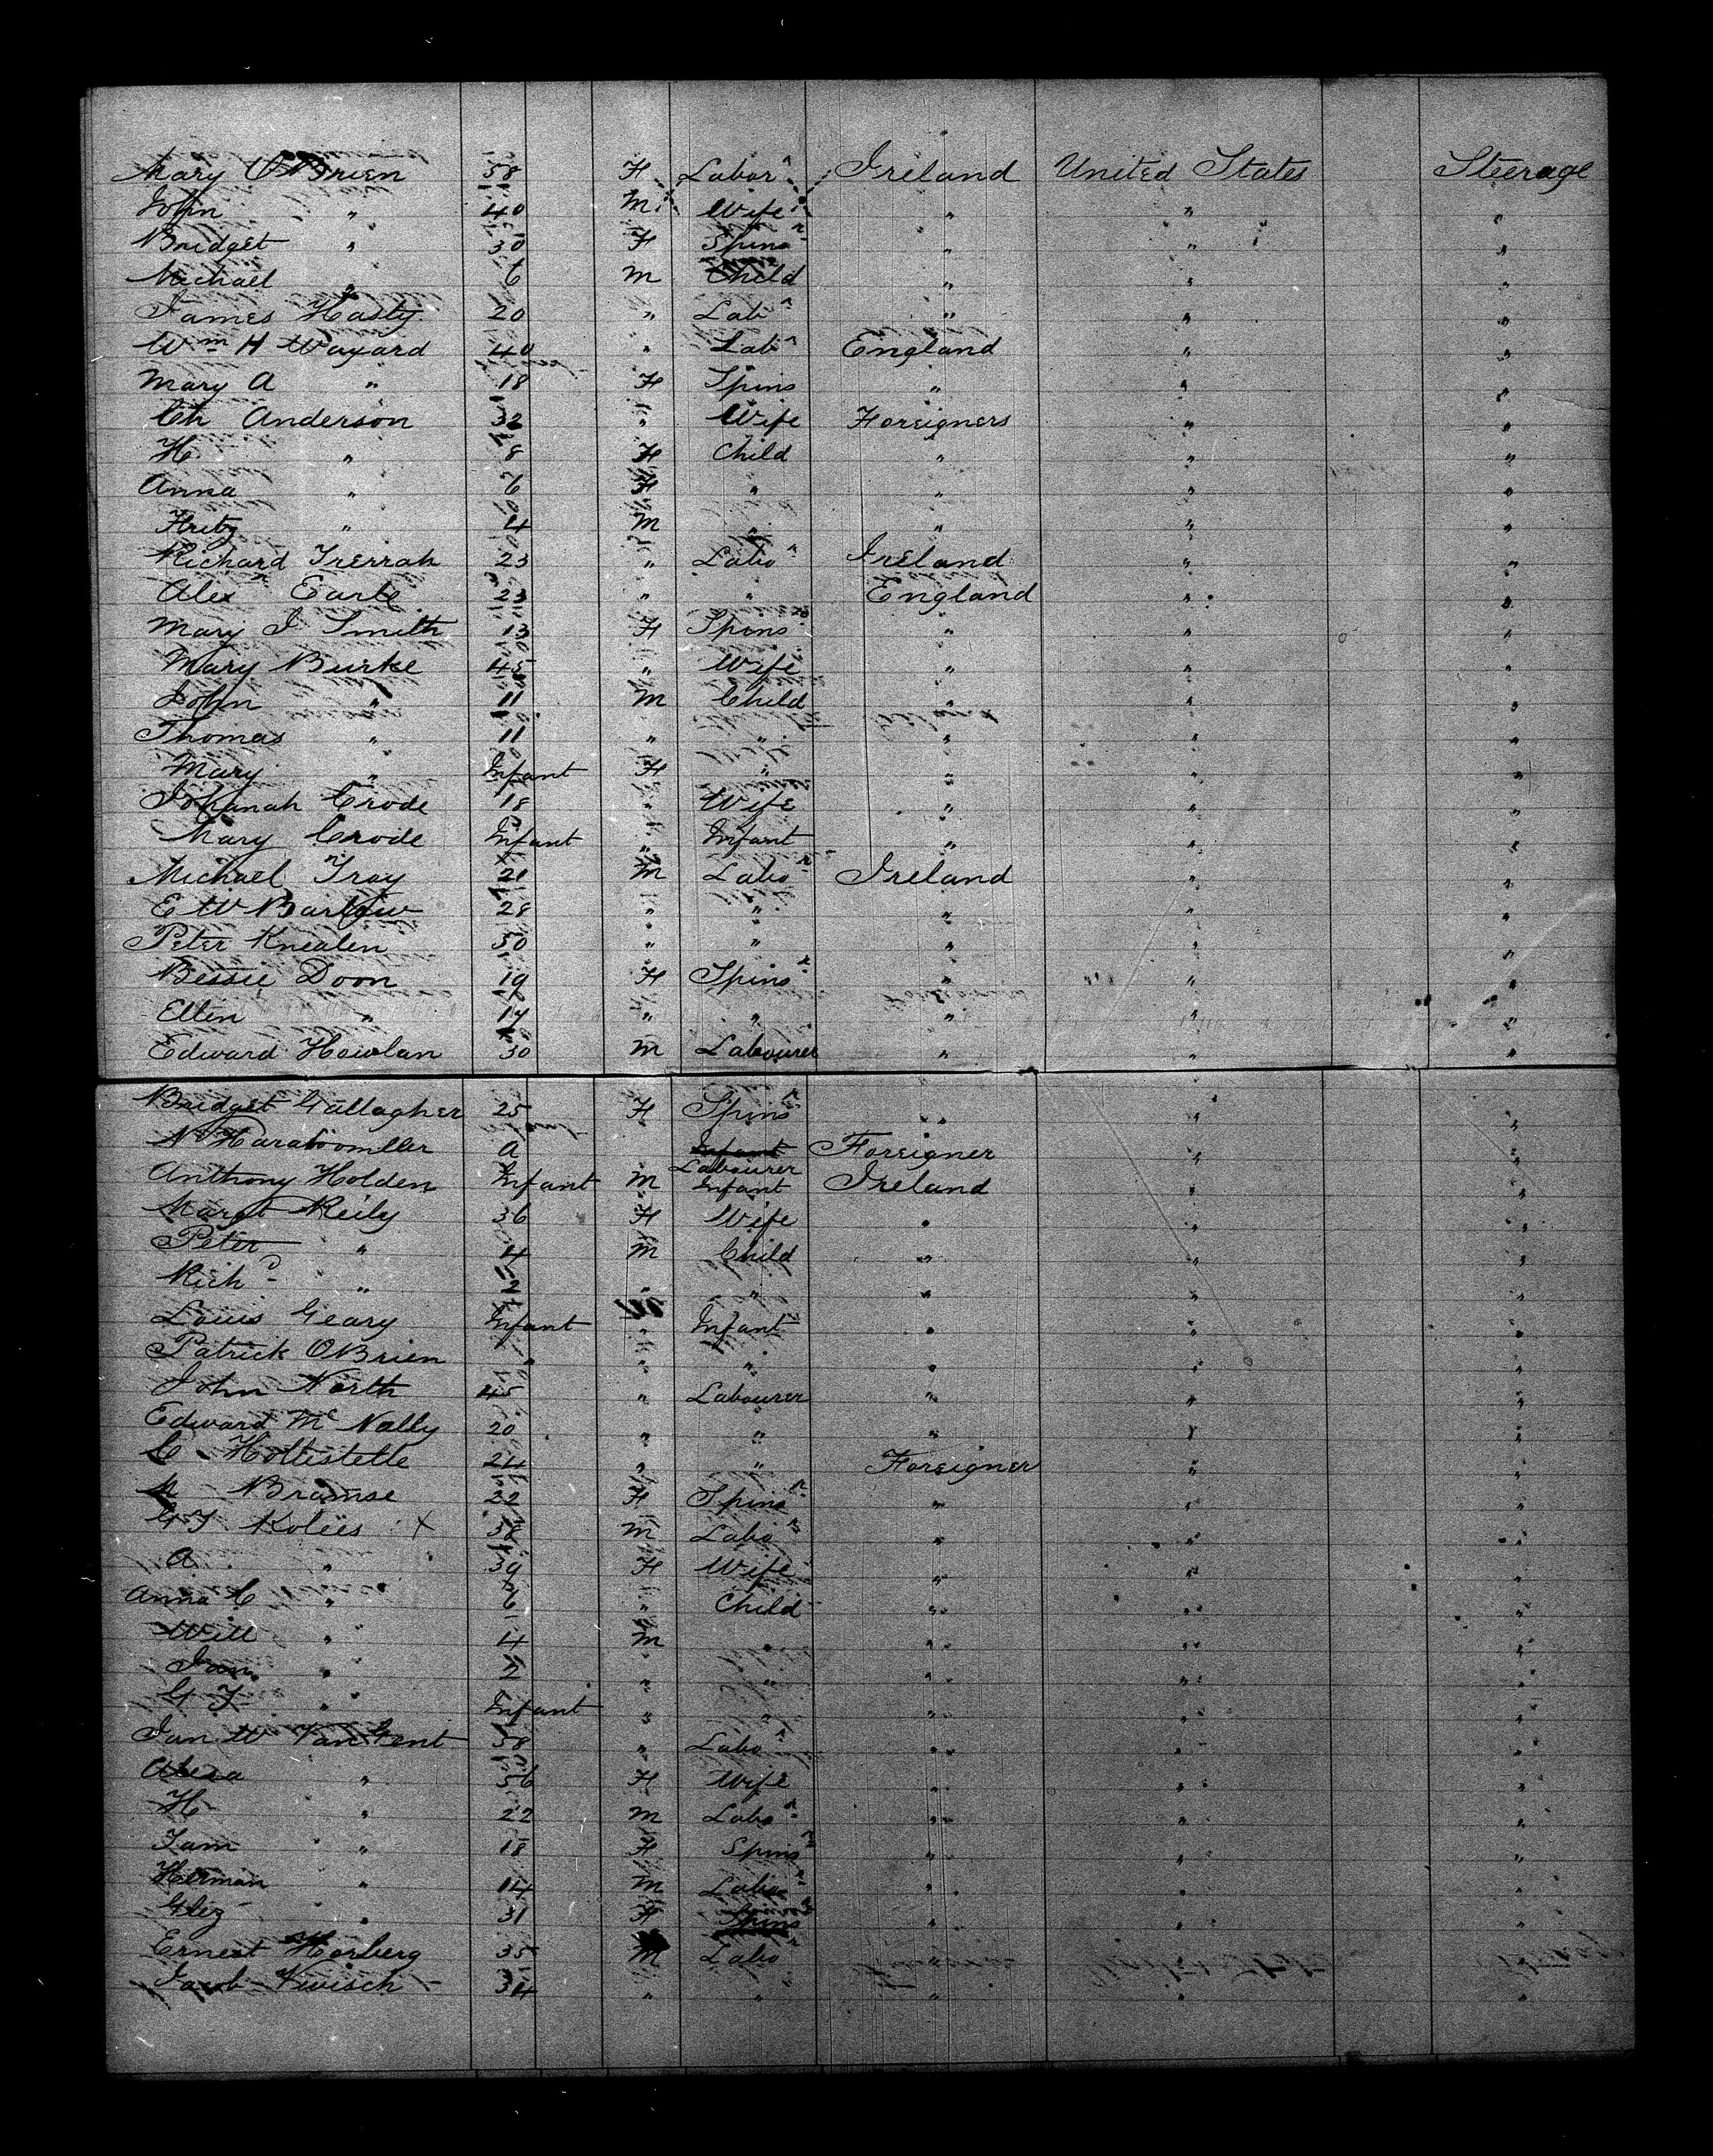 Mary O'Brien 58 F Labor^r Ireland United States Steerage
John " 40 M Wife " " "
Bridget " 30 F Spins^r " " "
Michael " 6 M Child " " "
James Hasty 20 " Lab^r " " "
W^m H Wayard 40 " Lab^r England " "
Mary A " 18 F Spins " " "
Ch Anderson 32 " Wife Foreigners " "
H " 8 F Child " " "
Anna " 6 F " " " "
Fritz " 4 M " " " "
Richard Trerrah 23 " Labo^r Ireland " "
Alex^n Earle 23 " " England " "
Mary J Smith 13 F Spins^r " " "
Mary Burke 45 " Wife " " "
John " 11 M Child " " "
Thomas " 11 " " " " "
Mary " Infant F " " " "
Johanah Crode 18 " Wife " " "
Mary Crode Infant " Infant " " "
Michael Troy 21 M Labo^r Ireland " "
E W Bartow 28 " " " " "
Peter Knealen 50 " " " " "
Bessie Doon 19 F Spins^r " " "
Ellen " 17 " " " " "
Edward Howlan 30 M Labourer " " "
Bridget Gallagher 25 F Spins^r " " "
N a Infant Foreigner " "
Labourer
Anthony Holden Infant M Infant Ireland " "
Margt Reily 36 F Wife " " "
Peter " 4 M Child " " "
Rich^d " 2 " " " " "
Louis Geary Infant " Infant " " "
Patrick OBrien " " " " " "
John North 45 " Labourer " " "
Edward Mc Nally 20 " " " " "
C Hollestelle 24 " " Foreigner " "
Bramse 22 F Spins^r " " "
G J Kolies X 38 M Labo^r " " "
A " 39 F Wife " " "
Anna C " 6 " Child " " "
Will " 4 M " " " "
Jan " 2 " " " " "
G J " Infant " " " " "
Jan W Van Gent 58 " Labo^r " " "
" 56 F Wife " " "
H " 22 M Labo^r " " "
Jam " 18 F Spins^r " " "
Herman " 14 M Labo^r " " "
" 31 F Spins^r " " "
Ernest Horberg 35 M Labo^r " " "
Jacob Kwisch 34 " " " " "